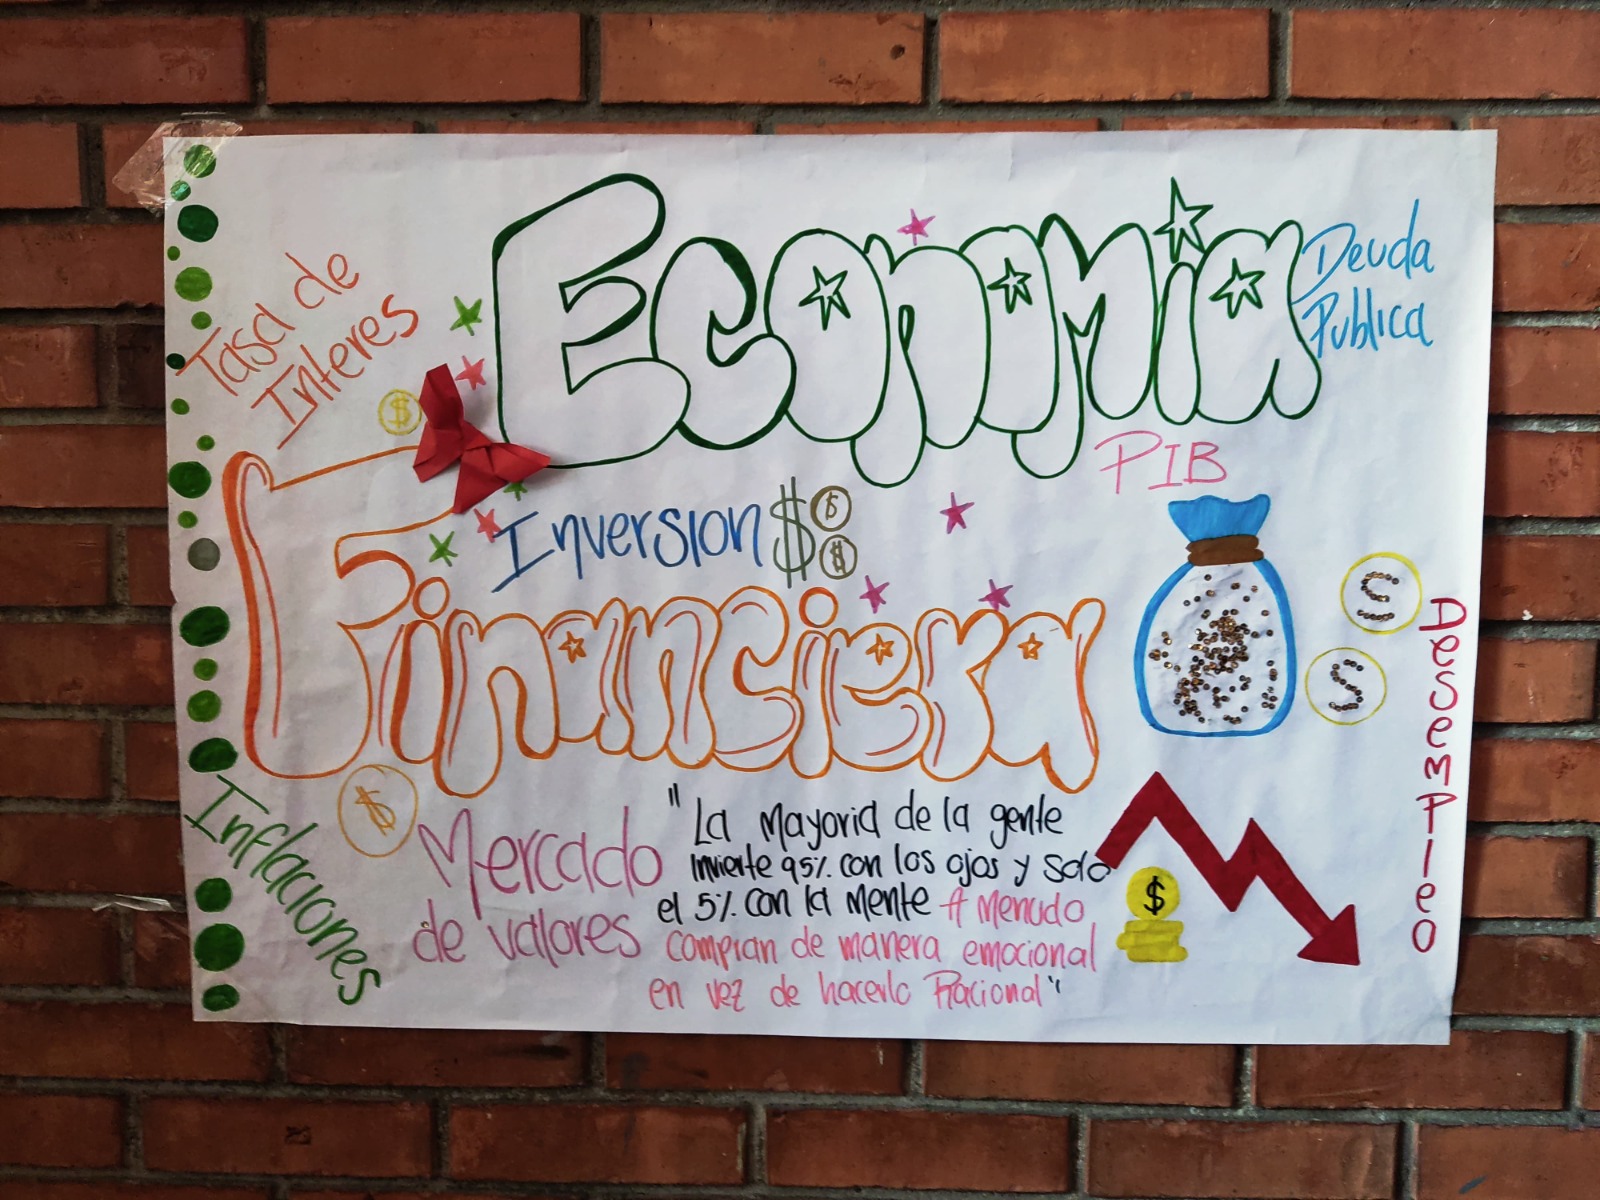 Economia
Deuda
Publica
Tasa de
Interes
$
PIB
Inversion $ $
$
Financiera
S
S
Desempleo
Inflaciones
$
Mercado
de valores
"La mayoria de la gente
invierte 95% con los ojos y solo
el 5% con la mente A menudo
compran de manera emocional
en vez de hacerlo Racional"
$